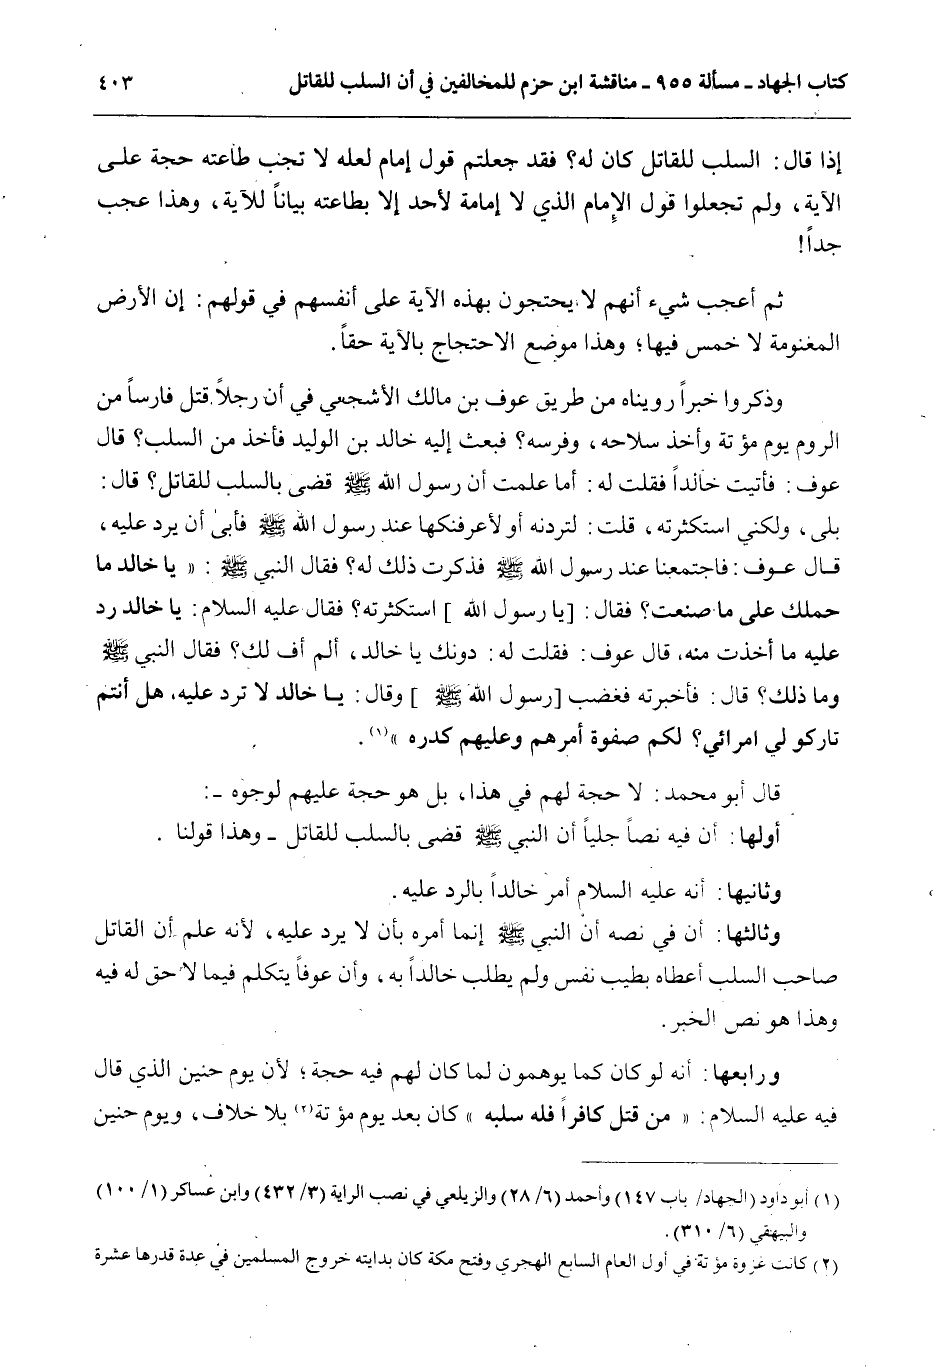 كتاب الجهاد ـ مسألة ٩٥٥ ـ مناقشة ابن حزم للمخالفين في أن السلب للقاتل ٤٠٣
إذا قال: السلب للقاتل كان له؟ فقد جعلتم قول إمام لعله لا تجب طاعته حجة على
الآية، ولم تجعلوا قول الإمام الذي لا إمامة لأحد إلا بطاعته بياناً للآية، وهذا عجب
جداً!
ثم أعجب شيء أنهم لا يحتجون بهذه الآية على أنفسهم في قولهم: إن الأرض
المغنومة لا خمس فيها؛ وهذا موضع الاحتجاج بالآية حقاً.
وذكروا خبراً رويناه من طريق عوف بن مالك الأشجعي في أن رجلاً قتل فارساً من
الروم يوم مؤتة وأخذ سلاحه، وفرسه؟ فبعث إليه خالد بن الوليد فأخذ من السلب؟ قال
عوف: فأتيت خالداً فقلت له: أما علمت أن رسول الله ﷺ قضى بالسلب للقاتل؟ قال:
بلى، ولكني استكثرته، قلت: لتردنه أو لأعرفنكها عند رسول الله ﷺ فأبى أن يرد عليه،
قال عوف: فاجتمعنا عند رسول الله ﷺ فذكرت ذلك له؟ فقال النبي ﷺ: « يا خالد ما
حملك على ما صنعت؟ فقال: [يا رسول الله ] استكثرته؟ فقال عليه السلام: يا خالد رد
عليه ما أخذت منه، قال عوف: فقلت له: دونك يا خالد، ألم أف لك؟ فقال النبي ﷺ
وما ذلك؟ قال: فأخبرته فغضب [رسول الله ﷺ ] وقال: يا خالد لا ترد عليه، هل أنتم
تاركو لي امرائي؟ لكم صفوة أمرهم وعليهم كدره »(١).
قال أبو محمد: لا حجة لهم في هذا، بل هو حجة عليهم لوجوه ـ:
أولها: أن فيه نصاً جلياً أن النبي ﷺ قضى بالسلب للقاتل ـ وهذا قولنا .
وثانيها: أنه عليه السلام أمر خالداً بالرد عليه.
وثالثها: أن في نصه أن النبي ﷺ إنما أمره بأن لا يرد عليه، لأنه علم أن القاتل
صاحب السلب أعطاه بطيب نفس ولم يطلب خالداً به، وأن عوفاً يتكلم فيما لا حق له فيه
وهذا هو نص الخبر.
ورابعها: أنه لو كان كما يوهمون لما كان لهم فيه حجة؛ لأن يوم حنين الذي قال
فيه عليه السلام: « من قتل كافراً فله سلبه » كان بعد يوم مؤتة(٢) بلا خلاف، ويوم حنين
(١) أبو داود (الجهاد/ باب ١٤٧) وأحمد (٦/ ٢٨) والزيلعي في نصب الراية (٣/ ٤٣٢) وابن عساكر (١/ ١٠٠)
والبيهقي (٦/ ٣١٠).
(٢) كانت غزوة مؤتة في أول العام السابع الهجري وفتح مكة كان بدايته خروج المسلمين في عدة قدرها عشرة